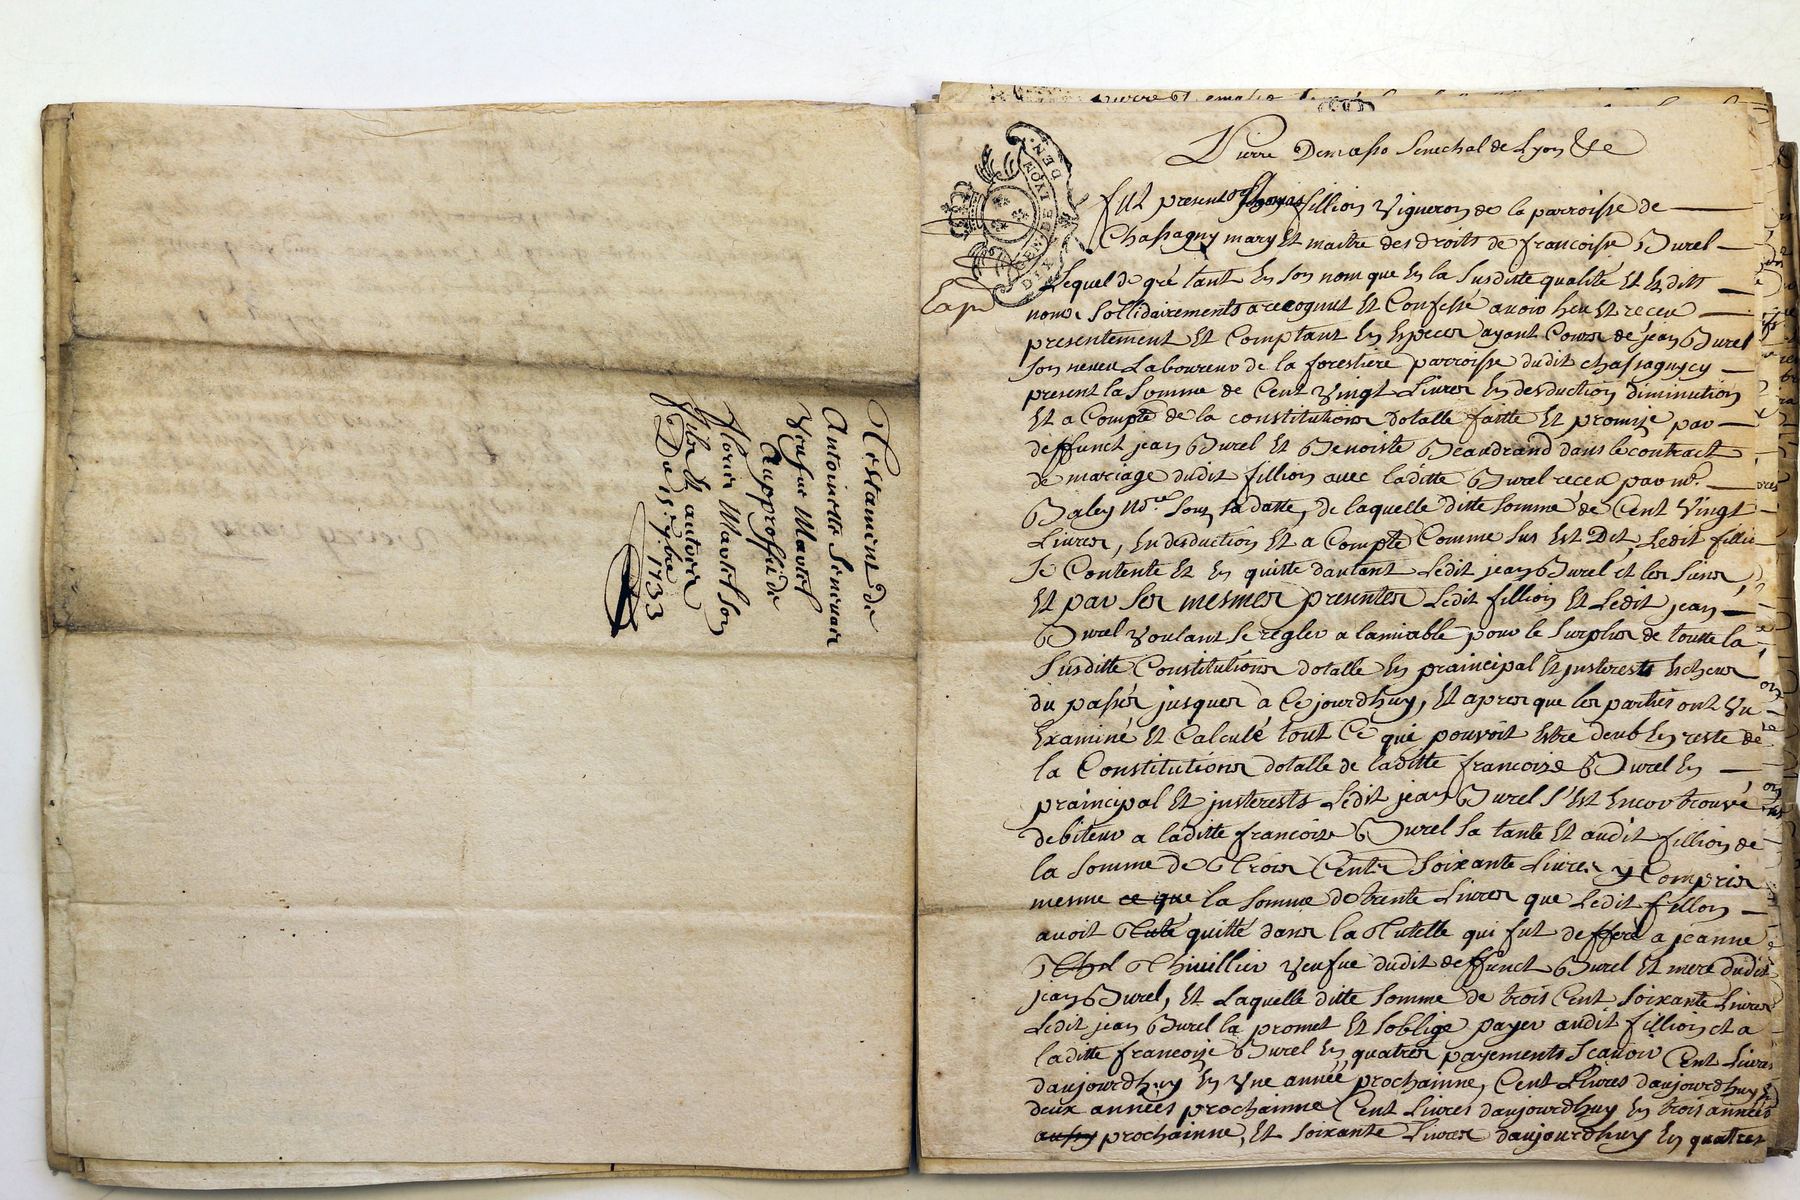 Testament de
Antoinette
Veufue Martel
Au proffit de
Martel son
fils et autres
Du 15 7bre 1733
DIX DEN. DE LYON
DEN.
Pierre Demasso Senechal de Lyon &c
fut present fillion Vigneron de la parroisse de
Chassagny mary et maitre des droits de francoisse Burel
Lequel de gré tant en son nom que en la susditte qualité et esdits
noms sollidairements a recognut et Confessé avoir heu et receu
presentement et Comptant en especes ayant Cours de jean Burel
son neveu Laboureur de la forestiere parroisse dudit chassagny cy
present la Somme de Cent Vingt Livres en desduction diminution
et a Compte de la constitution dotalle faitte et promise par
deffunct jean Burel et Benoiste Beaudrand dans le contract
de mariage dudit fillion avec laditte Burel receu par me.
Baley nore. sous sa datte, de laquelle ditte somme de Cent Vingt
Livres, en desduction et a Compte Comme sus est Dit, Ledit fillio
se Contente et en quitte dautant Ledit jean Burel et les siens,
et par les mesmes presentes Ledit fillion et Ledit jean
Burel voulant se regler a lamiable pour le surplus de toutte la
susditte Constitution dotalle en praincipal et justerests escheus
du passés jusques a Cejourdhuy, et apres que les parties ont Vu
Examiné et Calculé tout Ce qui pouvoit estre deub en reste de
la Constitution dotalle de laditte francoize Burel en
praincipal et justerests Ledit jean Burel s'est encor trouvé
debiteur a laditte francoize Burel sa tante et audit fillion de
la Somme de Trois Cents soixante Livres y Compris
mesme ce que la Somme de trente Livres que Ledit fillon
avoit Tuté quitté dans la Tutelle qui fut defferé a jeanne
Thivillier veufue dudit deffunct Burel et mere dudit
jean Burel, et Laquelle ditte Somme de trois Cent soixante Livres
Ledit jean Burel la promet et soblige payer audit fillion et a
laditte francoize Burel en quatres payements scavoir Cent Livres
daujourdhuy en Vne année prochainne, Cent Livres daujourdhuy en
deux années prochainne Cent Livres daujourdhuy en trois années
prochainne, et soixante Livres daujourdhuy en quatres